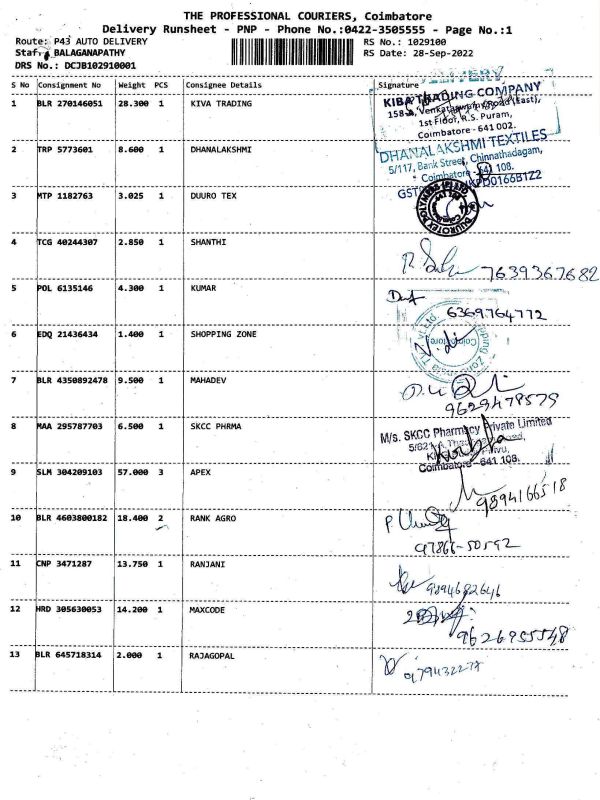 THE PROFESSIONAL COURIERS, Coimbatore
Delivery Runsheet - PNP - Phone No.:0422-3505555 - Page No.:1
Route: P43 AUTO DELIVERY RS No.: 1029100
BALAGANAPATHY RS Date: 28-Sep-2022
DRS No.: DCJB102910001
S No Consignment No Weight PCS Consignee Details Signature
DELIVERY
1 BLR 270146051 28.300 1 KIVA TRADING
KIBA TRADING COMPANY
Venkataswamy Road (East),
1st Floor, R.S. Puram,
Coimbatore - 641 002.
2 TRP 5773601 8.600 1 DHANALAKSHMI
DHANALAKSHMI TEXTILES
5/117, Bank Street, Chinnathadagam,
Coimbatore - 641 108.
3 MTP 1182763 3.025 1 DUURO TEX
4 TCG 40244307 2.850 1 SHANTHI
7639367682
5 POL 6135146 4.300 1 KUMAR
6369764772
6 EDQ 21436434 1.400 1 SHOPPING ZONE
7 BLR 4350892478 9.500 1 MAHADEV
9629478579
8 MAA 295787703 6.500 1 SKCC PHRMA
M/s. SKCC Pharmacy Private Limited
Coimbatore - 641 108.
9 SLM 304209103 57.000 3 APEX
9894166518
10 BLR 4603800182 18.400 2 RANK AGRO
97866-50592
11 CNP 3471287 13.750 1 RANJANI
9894682646
12 HRD 305630053 14.200 1 MAXCODE
9626955548
13 BLR 645718314 2.000 1 RAJAGOPAL